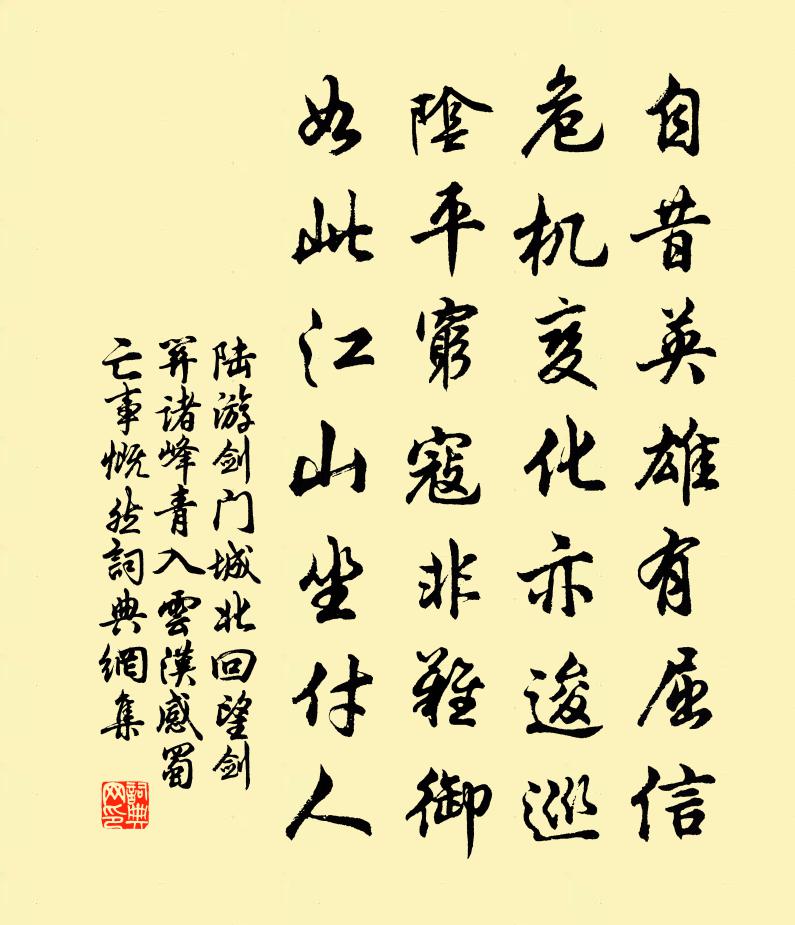 自昔英雄有屈信
危机变化亦逡巡
陰平窮寇非難御
如此江山坐付人
陆游剑门城北回望剑
关诸峰青入雲漢感蜀
亡事慨然詞典網集
詞典
网印